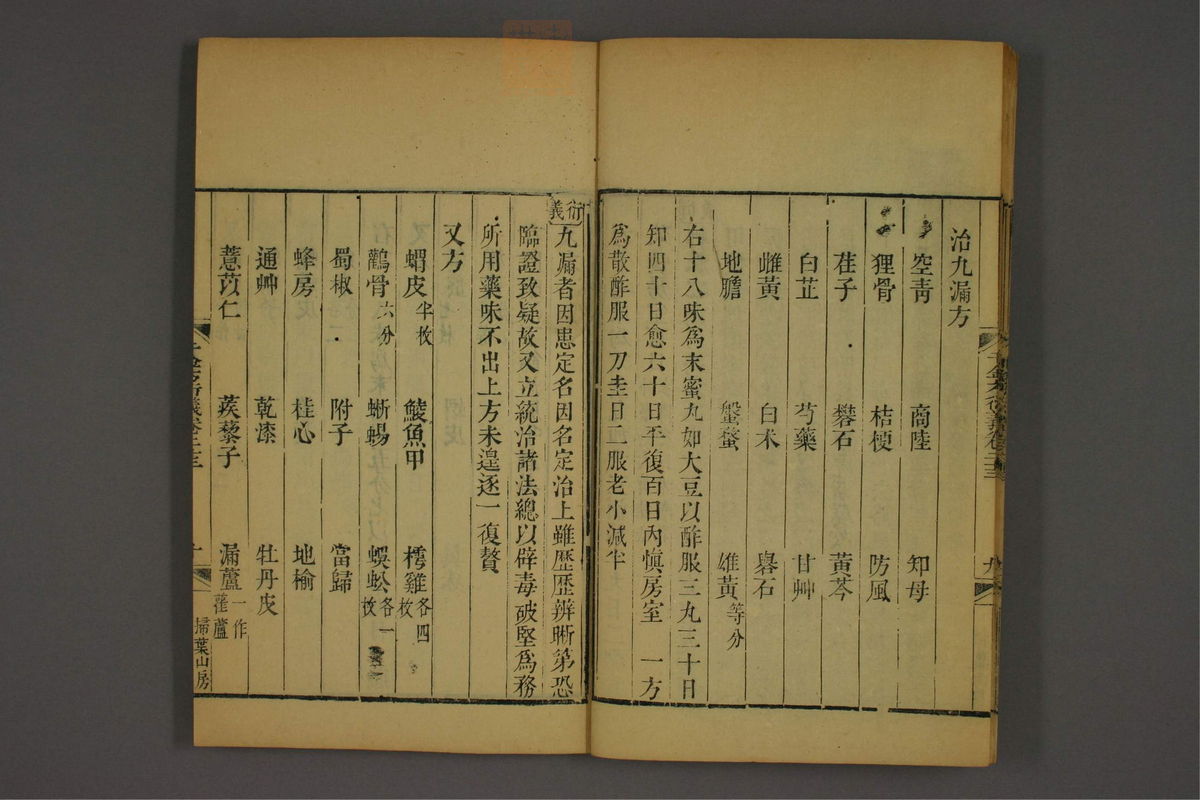 治九漏方
空青 商陸 知母
狸骨 桔梗 防風
荏子 礬石 黃芩
白芷 芍藥 甘艸
雌黃 白术 礜石
地膽 盤蝥 雄黃等分
右十八味爲末蜜丸如大豆以酢服三丸三十日
知四十日愈六十日平復百日內愼房室 一方
爲散酢服一刀圭日二服老小減半
衍義九漏者因患定名因名定治上雖歷歷辨晰第恐
臨證致疑故又立統治諸法總以辟毒破堅爲務
所用藥味不出上方未遑逐一復贅
又方
蝟皮半枚 鯪魚甲 樗雞各四枚
鸛骨六分 蜥蜴 蜈蚣各一枚
蜀椒 附子 當歸
蜂房 桂心 地榆
通艸 乾漆 牡丹皮
薏苡仁 蒺藜子 漏蘆一作藋蘆
千金方衍義卷二十三
掃葉山房